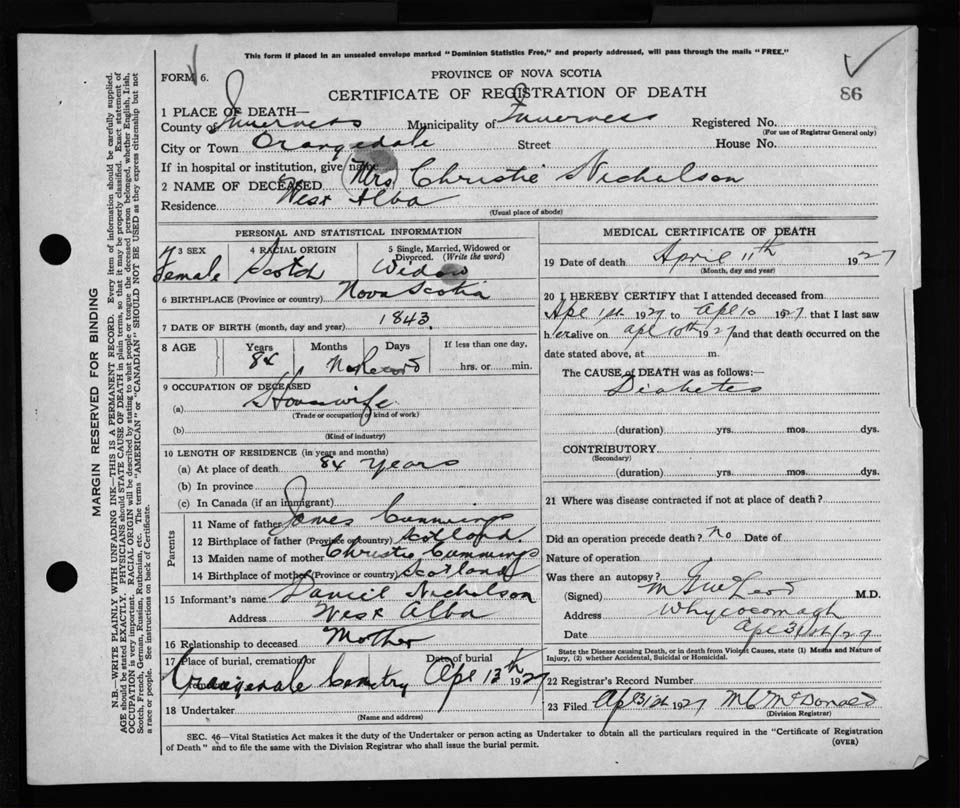 This form if placed in an unsealed envelope marked "Dominion Statistics Free," and properly addressed, will pass through the mails "FREE."
FORM 6.
PROVINCE OF NOVA SCOTIA
CERTIFICATE OF REGISTRATION OF DEATH
86
1 PLACE OF DEATH—
County of Inverness Municipality of Inverness Registered No.
(For use of Registrar General only)
City or Town Orangedale Street House No.
If in hospital or institution, give name
2 NAME OF DECEASED Mrs Christie Nicholson
Residence West Alba
(Usual place of abode)
PERSONAL AND STATISTICAL INFORMATION
3 SEX 4 RACIAL ORIGIN 5 Single, Married, Widowed or Divorced. (Write the word)
Female Scotch Widow
6 BIRTHPLACE (Province or country) Nova Scotia
7 DATE OF BIRTH (month, day and year) 1843
8 AGE Years Months Days If less than one day,
84 No Record hrs. or min.
9 OCCUPATION OF DECEASED
(a) Housewife
(Trade or occupation or kind of work)
(b)
(Kind of industry)
10 LENGTH OF RESIDENCE (in years and months)
(a) At place of death 84 years
(b) In province
(c) In Canada (if an immigrant)
Parents
11 Name of father James Cummings
12 Birthplace of father (Province or country) Scotland
13 Maiden name of mother Christie Cummings
14 Birthplace of mother (Province or country) Scotland
15 Informant's name Daniel Nicholson
Address West Alba
16 Relationship to deceased Mother
17 Place of burial, cremation or Date of burial
Orangedale Cemetry Apl 13th 1927
18 Undertaker
(Name and address)
MEDICAL CERTIFICATE OF DEATH
19 Date of death April 11th 1927
(Month, day and year)
20 I HEREBY CERTIFY that I attended deceased from
Apl 1st 1927 to Apl 10 1927, that I last saw
her alive on apl 10th 1927 and that death occurred on the
date stated above, at m.
The CAUSE of DEATH was as follows:—
Diabetes
(duration) yrs. mos. dys.
CONTRIBUTORY
(Secondary)
(duration) yrs. mos. dys.
21 Where was disease contracted if not at place of death?
Did an operation precede death? No Date of
Nature of operation
Was there an autopsy?
(Signed) M.D.
Address Whycocomagh
Date Apl 31st/27
State the Disease causing Death, or in death from Violent Causes, state (1) Means and Nature of
Injury, (2) whether Accidental, Suicidal or Homicidal.
22 Registrar's Record Number
23 Filed Apl 31st 1927 McDonald
(Division Registrar)
SEC. 46—Vital Statistics Act makes it the duty of the Undertaker or person acting as Undertaker to obtain all the particulars required in the "Certificate of Registration
of Death" and to file the same with the Division Registrar who shall issue the burial permit.
(OVER)
MARGIN RESERVED FOR BINDING
N.B.—WRITE PLAINLY WITH UNFADING INK—THIS IS A PERMANENT RECORD. Every item of information should be carefully supplied.
AGE should be stated EXACTLY. PHYSICIANS should STATE CAUSE OF DEATH in plain terms, so that it may be properly classified. Exact statement of
OCCUPATION is very important. RACIAL ORIGIN will be described by stating to what people or tongue the deceased person belonged, whether English, Irish,
Scotch, French, German, Russian, Ruthenian, etc. The terms "AMERICAN" or "CANADIAN" SHOULD NOT BE USED as they express citizenship but not
a race or people. See instructions on back of Certificate.